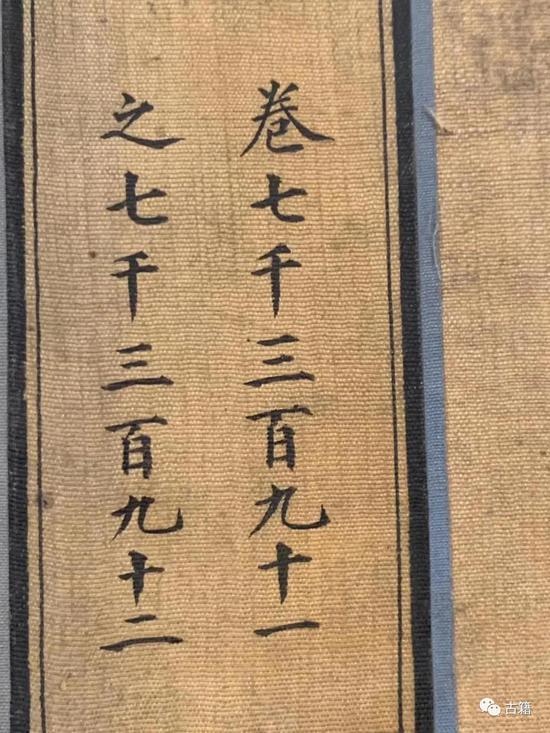 卷七千三百九十一
之七千三百九十二
古籍